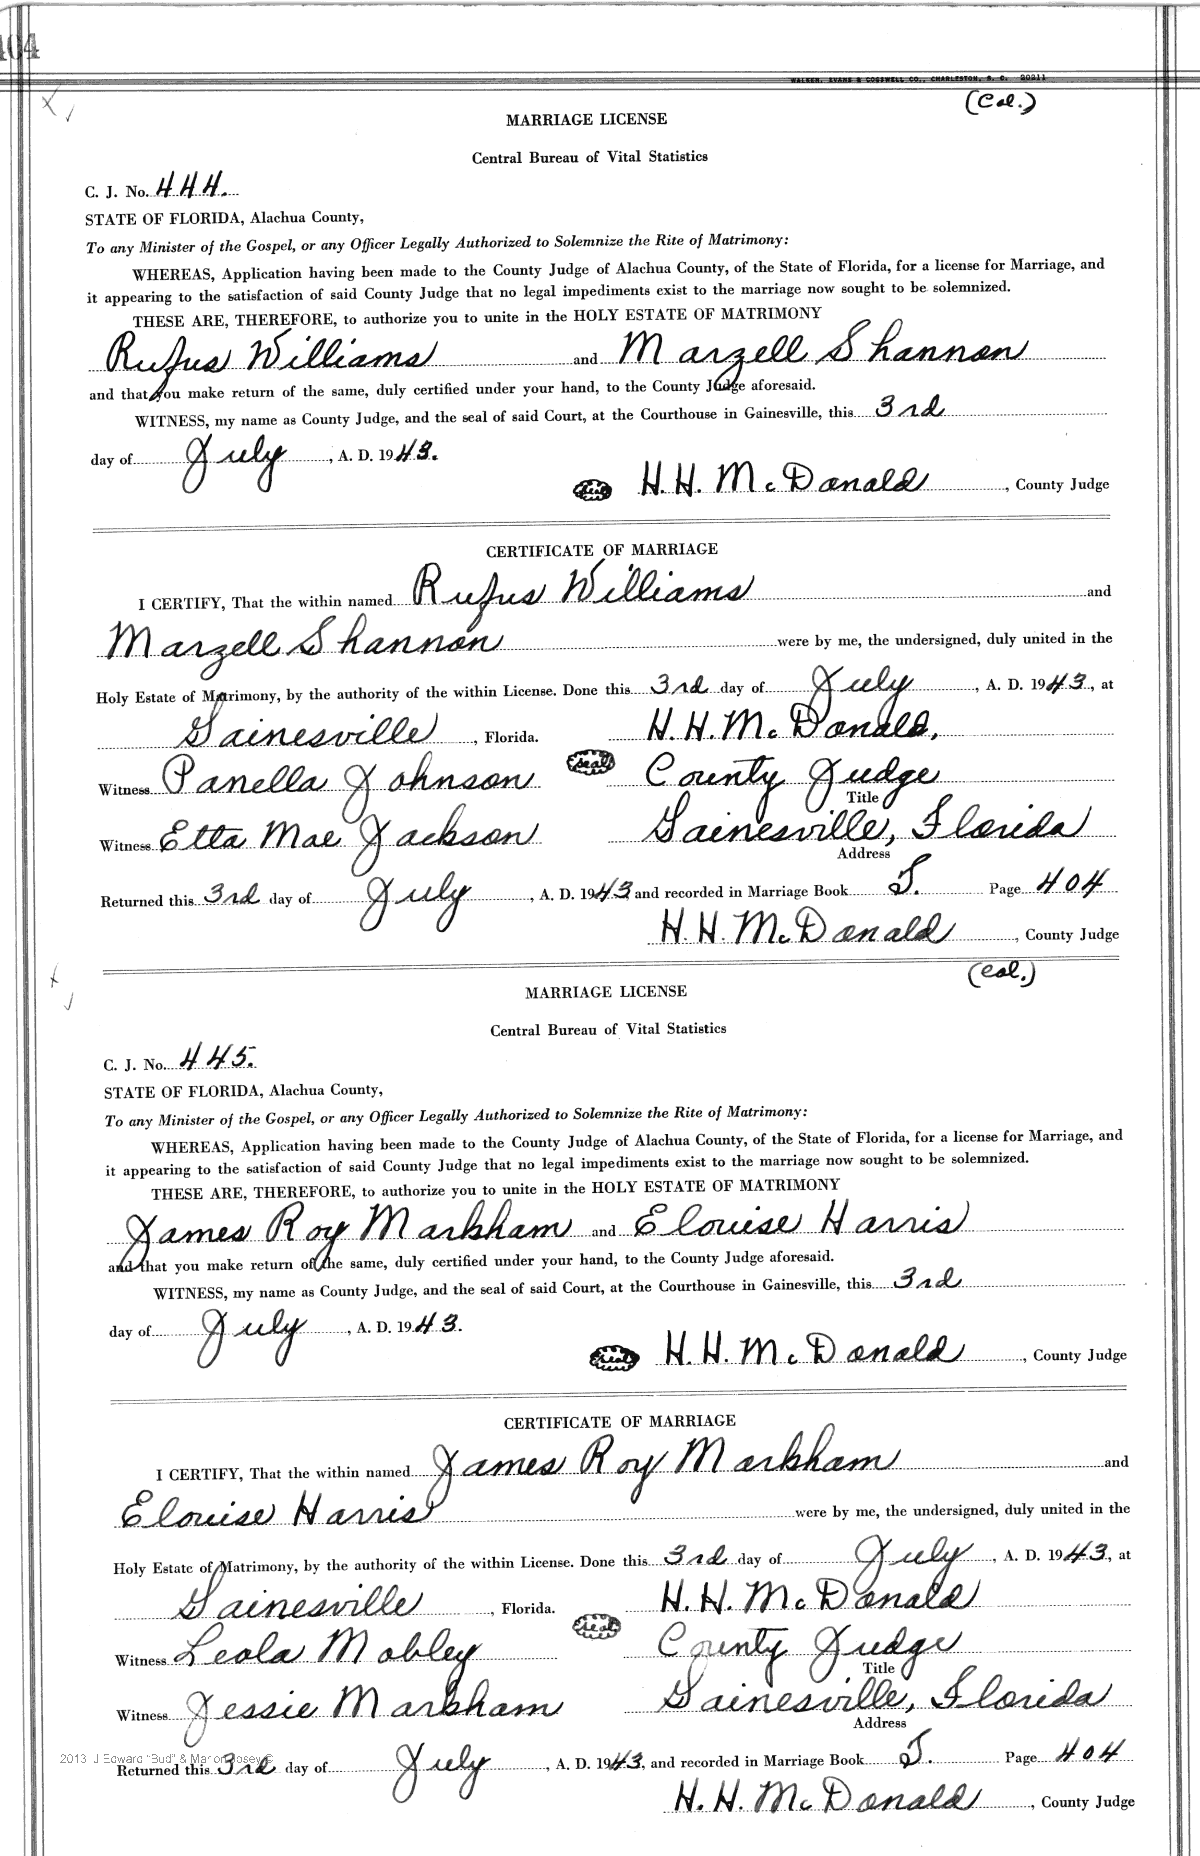 404
WALKER, EVANS & COGSWELL CO., CHARLESTON, S. C. 20211
(Col.)
MARRIAGE LICENSE
Central Bureau of Vital Statistics
C. J. No. 444.
STATE OF FLORIDA, Alachua County,
To any Minister of the Gospel, or any Officer Legally Authorized to Solemnize the Rite of Matrimony:
WHEREAS, Application having been made to the County Judge of Alachua County, of the State of Florida, for a license for Marriage, and
it appearing to the satisfaction of said County Judge that no legal impediments exist to the marriage now sought to be solemnized.
THESE ARE, THEREFORE, to authorize you to unite in the HOLY ESTATE OF MATRIMONY
Rufus Williams and Marzell Shannon
and that you make return of the same, duly certified under your hand, to the County Judge aforesaid.
WITNESS, my name as County Judge, and the seal of said Court, at the Courthouse in Gainesville, this 3rd
day of July, A. D. 1943.
(seal) H. H. McDonald, County Judge
CERTIFICATE OF MARRIAGE
I CERTIFY, That the within named Rufus Williams and
Marzell Shannon were by me, the undersigned, duly united in the
Holy Estate of Matrimony, by the authority of the within License. Done this 3rd day of July, A. D. 1943, at
Gainesville, Florida. H. H. McDonald,
Witness Panella Johnson (seal) County Judge
Title
Witness Etta Mae Jackson Gainesville, Florida
Address
Returned this 3rd day of July, A. D. 1943 and recorded in Marriage Book T. Page 404
H. H. McDonald, County Judge
(Col.)
MARRIAGE LICENSE
Central Bureau of Vital Statistics
C. J. No. 445.
STATE OF FLORIDA, Alachua County,
To any Minister of the Gospel, or any Officer Legally Authorized to Solemnize the Rite of Matrimony:
WHEREAS, Application having been made to the County Judge of Alachua County, of the State of Florida, for a license for Marriage, and
it appearing to the satisfaction of said County Judge that no legal impediments exist to the marriage now sought to be solemnized.
THESE ARE, THEREFORE, to authorize you to unite in the HOLY ESTATE OF MATRIMONY
James Roy Markham and Elouise Harris
and that you make return of the same, duly certified under your hand, to the County Judge aforesaid.
WITNESS, my name as County Judge, and the seal of said Court, at the Courthouse in Gainesville, this 3rd
day of July, A. D. 1943.
(seal) H. H. McDonald, County Judge
CERTIFICATE OF MARRIAGE
I CERTIFY, That the within named James Roy Markham and
Elouise Harris were by me, the undersigned, duly united in the
Holy Estate of Matrimony, by the authority of the within License. Done this 3rd day of July, A. D. 1943, at
Gainesville, Florida. H. H. McDonald
Witness Leola Mobley (seal) County Judge
Title
Witness Jessie Markham Gainesville, Florida
Address
2013 J Edward "Bud" & Marion Josey ©
Returned this 3rd day of July, A. D. 1943, and recorded in Marriage Book T. Page 404
H. H. McDonald, County Judge